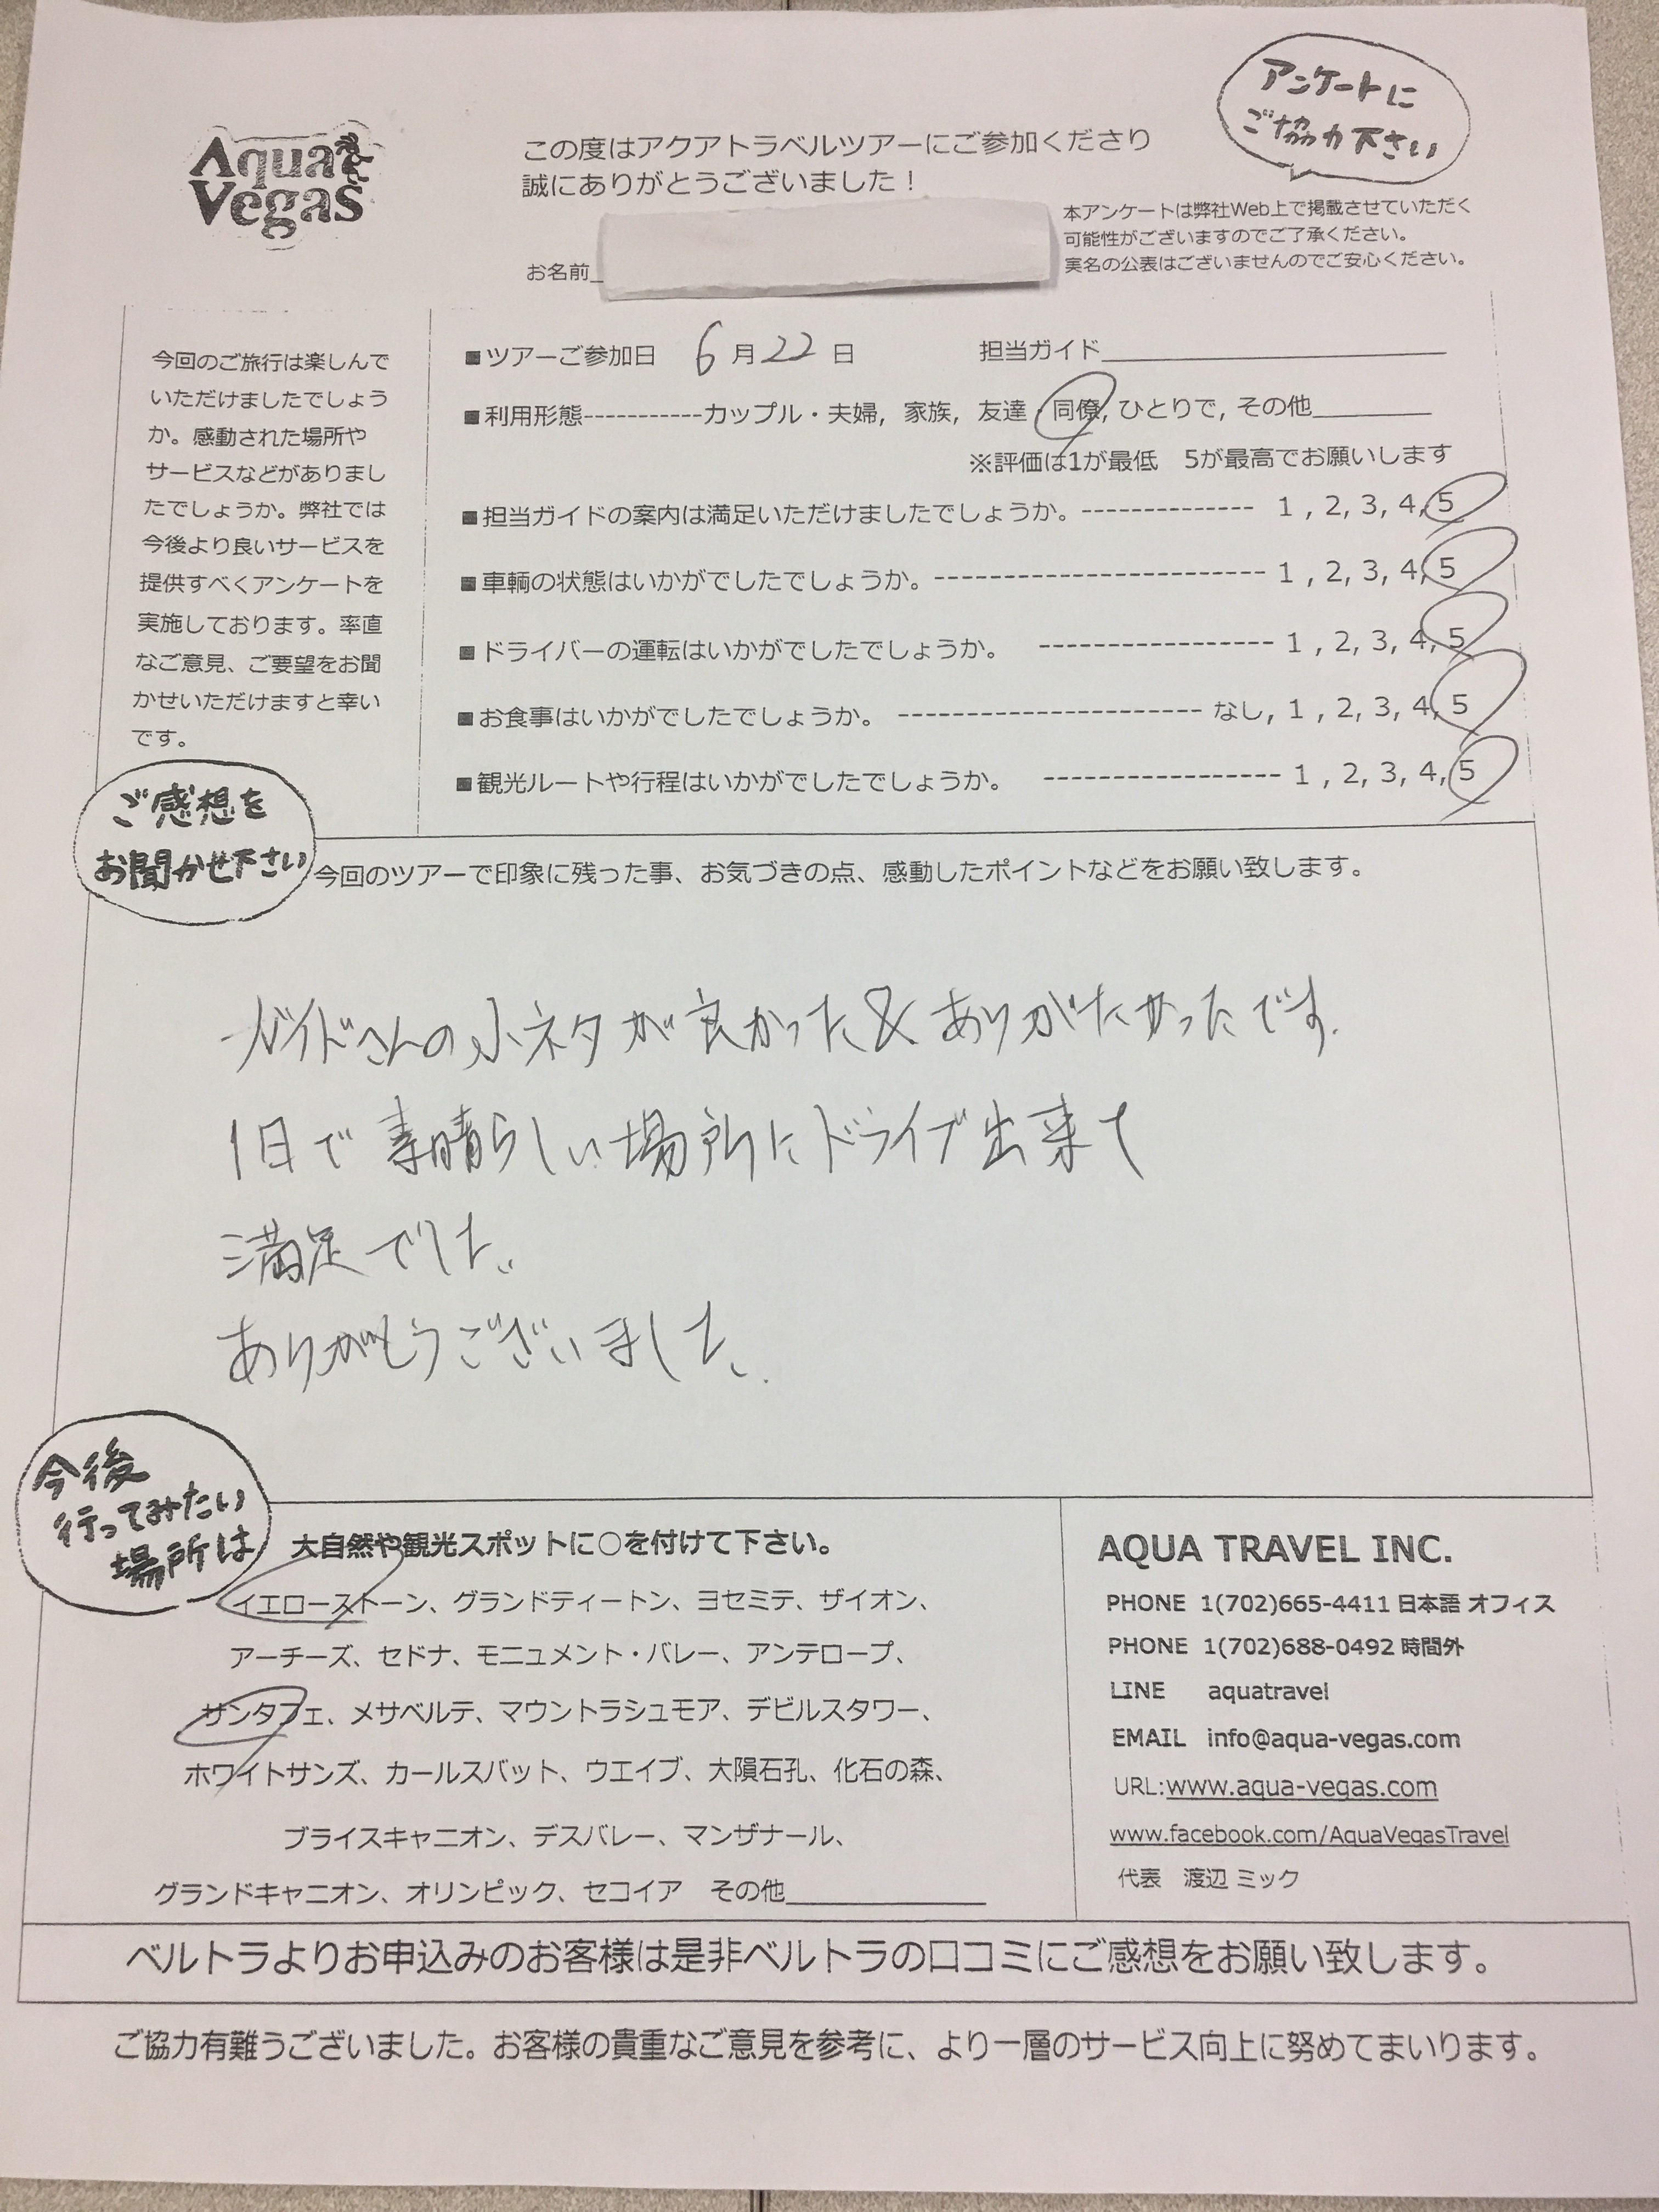 Aqua
Vegas
この度はアクアトラベルツアーにご参加くださり
誠にありがとうございました！
アンケートに
ご協力下さい
本アンケートは弊社Web上で掲載させていただく
可能性がございますのでご了承ください。
実名の公表はございませんのでご安心ください。
お名前
今回のご旅行は楽しんで
いただけましたでしょう
か。感動された場所や
サービスなどがありまし
たでしょうか。弊社では
今後より良いサービスを
提供すべくアンケートを
実施しております。率直
なご意見、ご要望をお聞
かせいただけますと幸い
です。
■ツアーご参加日 6月22日 担当ガイド
■利用形態-----------カップル・夫婦, 家族, 友達・同僚, ひとりで, その他
※評価は1が最低 5が最高でお願いします
■担当ガイドの案内は満足いただけましたでしょうか。------------- 1 , 2, 3, 4, 5
■車輌の状態はいかがでしたでしょうか。------------------------- 1 , 2, 3, 4, 5
■ドライバーの運転はいかがでしたでしょうか。 ----------------- 1 , 2, 3, 4, 5
■お食事はいかがでしたでしょうか。 ---------------------- なし, 1 , 2, 3, 4, 5
■観光ルートや行程はいかがでしたでしょうか。 ----------------- 1 , 2, 3, 4, 5
ご感想を
お聞かせ下さい
今回のツアーで印象に残った事、お気づきの点、感動したポイントなどをお願い致します。
ガイドさんの小ネタが良かった&ありがたかったです.
1日で素晴らしい場所にドライブ出来て
満足でした。
ありがとうございました。
今後
行ってみたい
場所は
大自然や観光スポットに○を付けて下さい。
イエローストーン、グランドティートン、ヨセミテ、ザイオン、
アーチーズ、セドナ、モニュメント・バレー、アンテロープ、
サンタフェ、メサベルテ、マウントラシュモア、デビルスタワー、
ホワイトサンズ、カールスバット、ウエイブ、大隕石孔、化石の森、
ブライスキャニオン、デスバレー、マンザナール、
グランドキャニオン、オリンピック、セコイア その他
AQUA TRAVEL INC.
PHONE 1(702)665-4411 日本語 オフィス
PHONE 1(702)688-0492 時間外
LINE aquatravel
EMAIL info@aqua-vegas.com
URL:www.aqua-vegas.com
www.facebook.com/AquaVegasTravel
代表 渡辺 ミック
ベルトラよりお申込みのお客様は是非ベルトラの口コミにご感想をお願い致します。
ご協力有難うございました。お客様の貴重なご意見を参考に、より一層のサービス向上に努めてまいります。